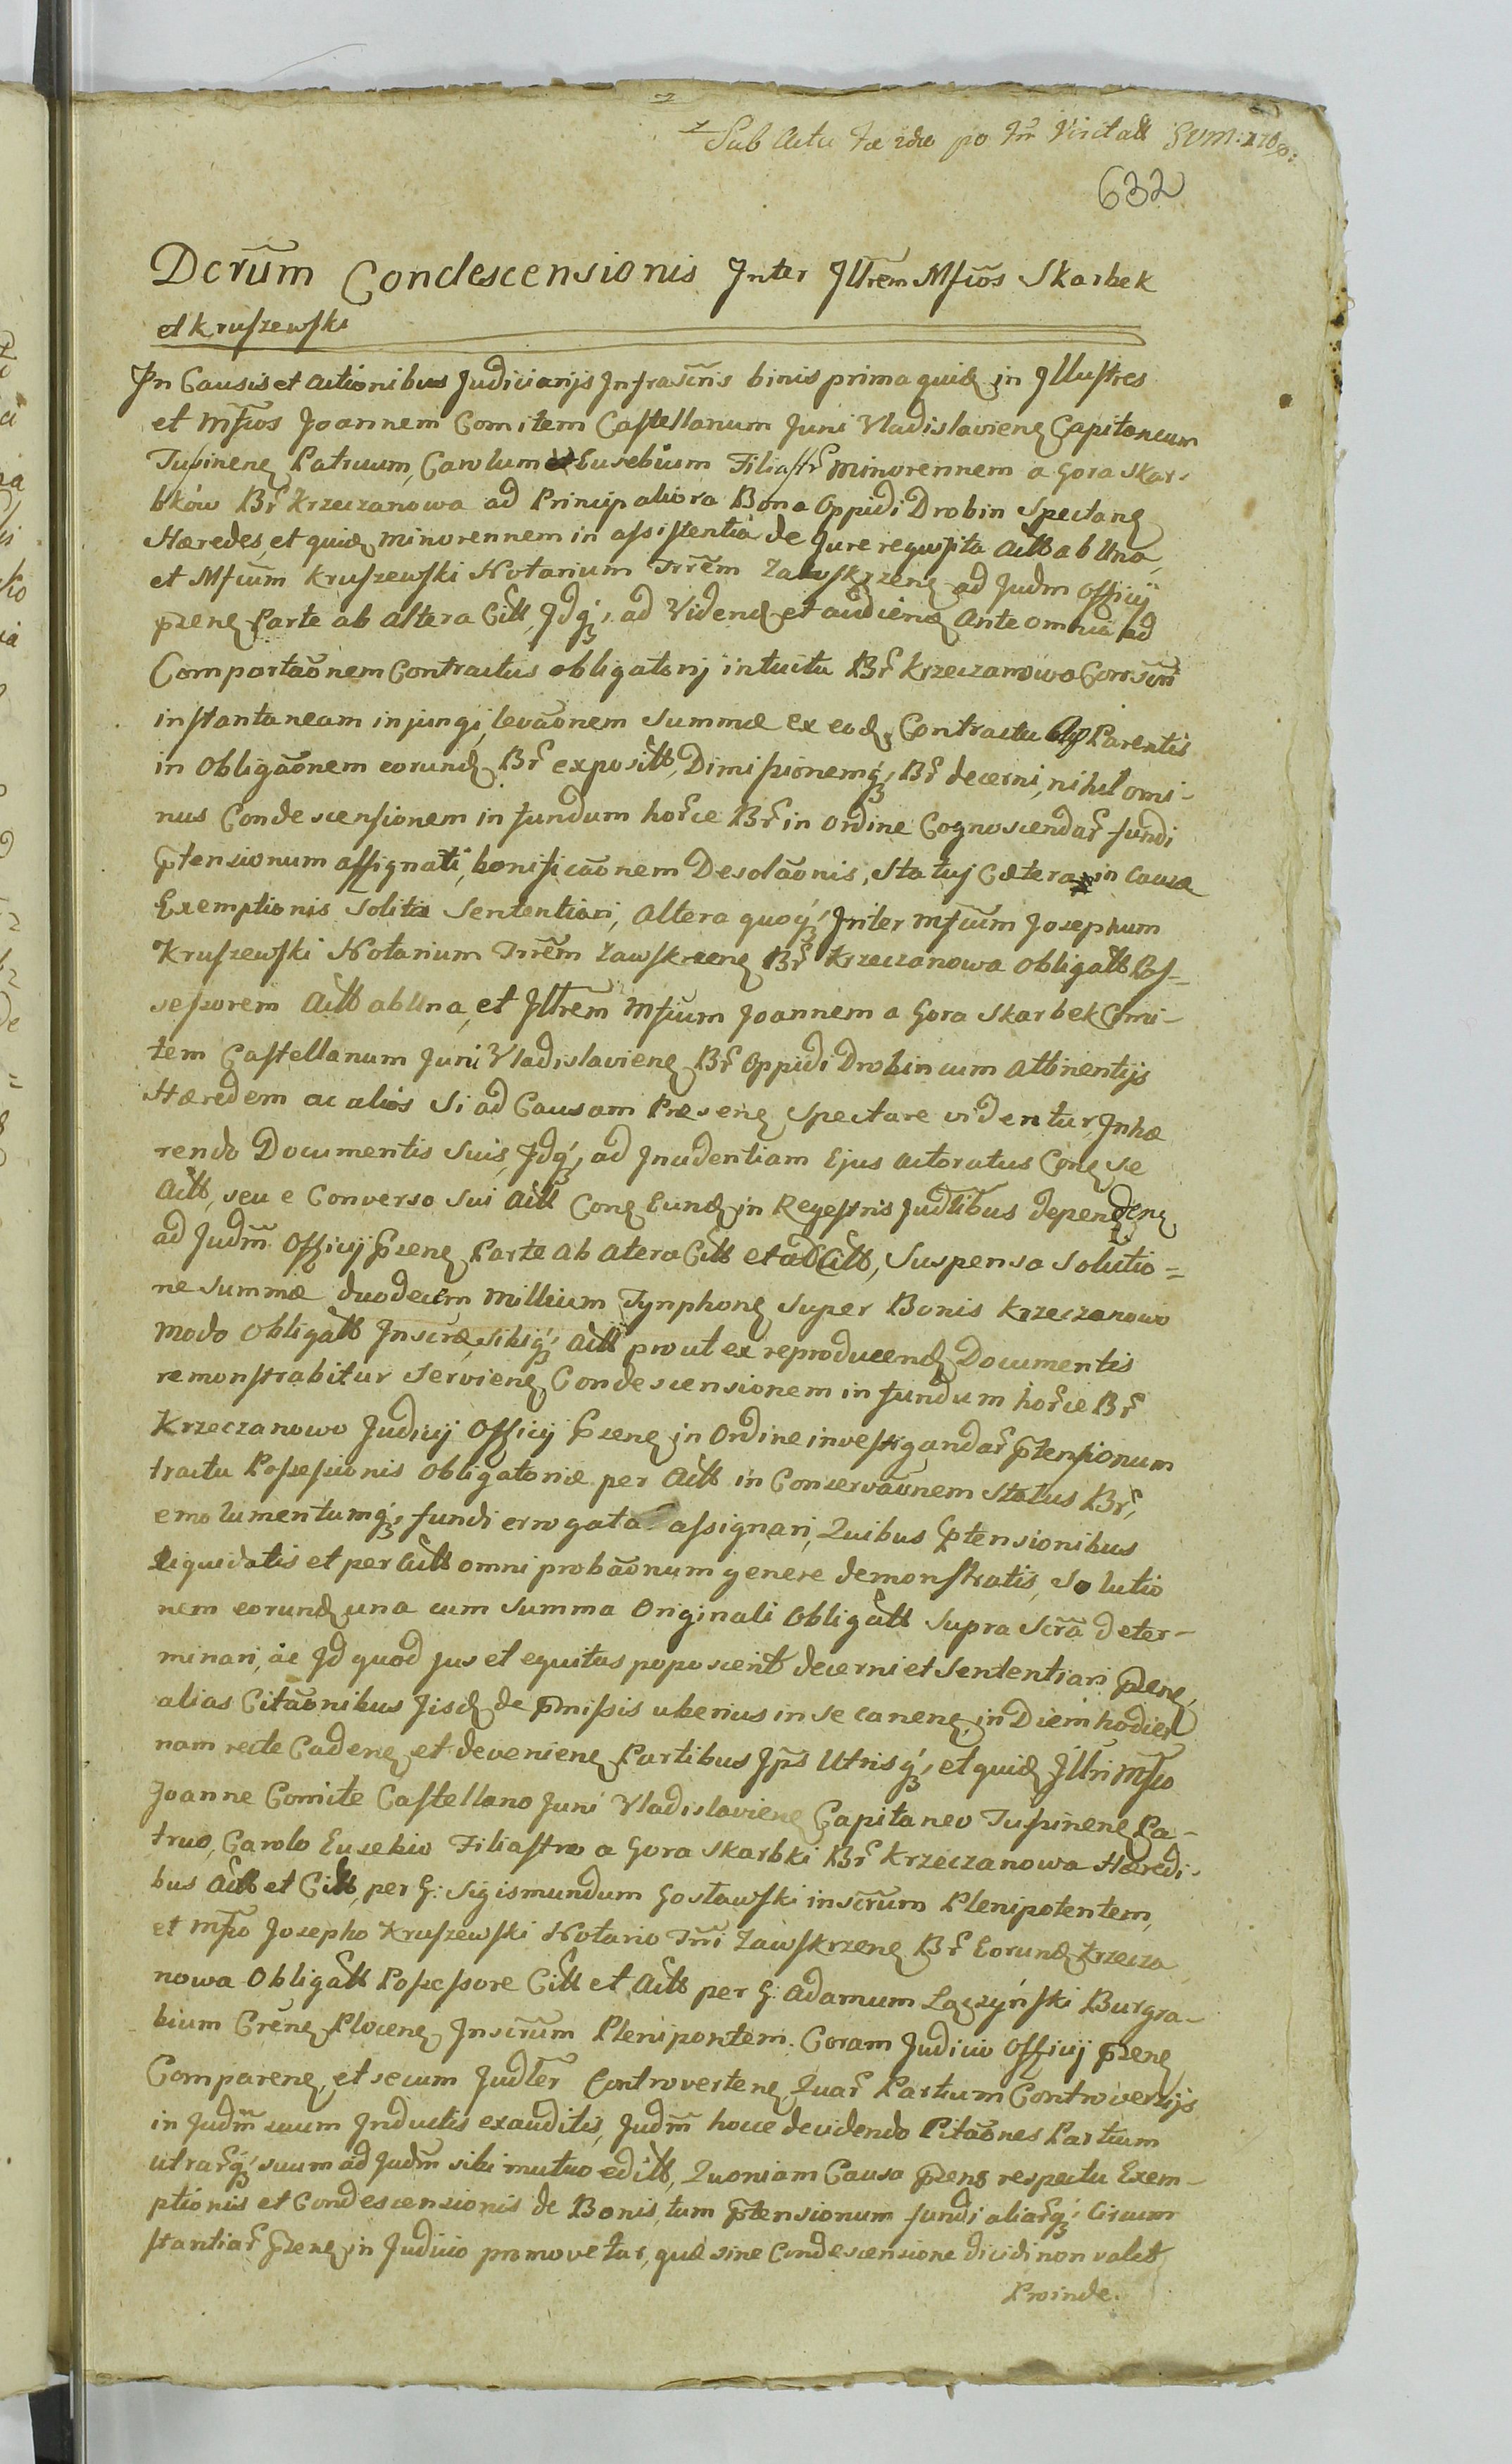 Sub Actu
632
Dcrũm Condescensionis Inter Jllrẽm Mfiĉos Skarbek
et Kruszewski
In Causis et Actionibus Judiciarijs Infrascr̃is binis prima quid in Jllustres
et Mfĩcos Joannem Comitem Castellanum Juni Vladislaviens Capitaneum
Tuszinens Patruum, Carolum Eusebium Filiastr̃ Minorennem a Gora Skar-
bków Br̃ Krzeczanowa ad Principaliora Bona Oppidi Drobin Spectans
Hæredes, et quid minorennem in assistentia de Jure requisita Actt ab Una,
et Mfiĉum Kruszewski Notarium Trrẽm Zawskrzens ad Judm Officij
przens Parte ab altera Citt, Jdq, ad Videnḋ et audienḋ Ante omnia ad
Comportãonem Contractus obligatorij intuitu Br̃ Krzeczanowa Conscr̃i
instantaneam injungi, levãonem Summæ ex eod Contractu Parentis
in Obligãonem eorund Br̃ expositt, Dimissionemq, Br̃ decerni, nihilomi-
nus Condescensionem in fundum hor̃ce Br̃ in Ordine Cognoscendar̃ fundi
p̃tensionum assignati, bonificãonem Desolãonis, Statuj Cætera in Causa
Exemptionis Solita Sententiari, Altera quoq, Inter Mfĩcum Josephum
Kruszewski Notarium Trrẽm Zawskrzens Br̃ Krzeczanowa Obligatt Pos-
sessorem Actt ab Una, et Jllrẽm Mfĩcum Joannem a Gora Skarbek Comi-
tem Castellanum Juni Vladislaviens Br̃ Oppidi Drobin cum Attinentijs
Hæredem ac alios Si ad Causam Præsens Spectare videntur, Inhæ
rendo Documentis Suis, Jdq, ad Incidentiam Ejus Actoratus Cons Se
Actt, seu e Converso Sui Actt Cons Eund in Regestris Judlibus dependens
ad Judm̃ Officij p̃zens Parte ab atera Citt et adCitt, Suspensa Solutio=
ne Summæ duodecim Millium Tynphons Super Bonis Krzeczanowo
modo Obligatt Inscræ, sibiq, Actt prout ex reproducend Documentis
remonstrabitur Serviens Condescensionem in fundum hor̃ce Br̃
Krzeczanowo Judicij Officij p̃zens in Ordine investigandar̃ p̃tensionum
tractu Possessionis Obligatoriæ per Actt in Conservãonem Status Br̃,
emolumentumq, fundi errogata assignari, Quibus p̃tensionibus
Liquidatis et per Actt omni probãonum genere demonstratis, Solutio
nem eorund una cum Summa Originali Obligatt Supra Scr̃a deter-
minari, ac Jd quod jus et equitas poposcerit decerni et Sententiari p̃zens,
alias Citãonibus Jisd de p̃missis uberius in se canens, in Diem hodier
nam recte Cadens et deveniens Partibus Jp̃s Utrisq, et quid Jllri Mfĩco
Joanne Comite Castellano Juni Vladislaviens Capitaneo Tuszinens Pa-
truo, Carolo Eusebio Filiastro a Gora Skarbki Br̃ Krzeczanowa Hæredi-
bus Actt et Citt, per G: Sigismundum Gosławski inscr̃um Plenipotentem,
et Mfĩco Josepho Kruszewski Notario Trr̃i Zawskrzens Br̃ Eorund Krzecza
nowa Obligatt Possessore Citt et Actt per G: Adamum Łączyński Burgra-
bium Crẽns Plocens Inscr̃um Plenipontem. Coram Judicio Officij p̃zens
Comparens, et secum Judlẽr Controvertens, Quar̃ Partium Controversijs
in Judm̃ suum Inductis exauditis, Judm̃ hocce decidendo Citãones Partium
utrar̃q, suum ad Judm̃ sibi mutuo editt, Quoniam Causa p̃zens respectu Exem-
ptionis et Condescensionis de Bonis, tum p̃tensionum fundi aliar̃q, Circum
stantiar̃ p̃zens in Judicio promovetur, quæ sine Condescensione dicidi non valet
Proinde.